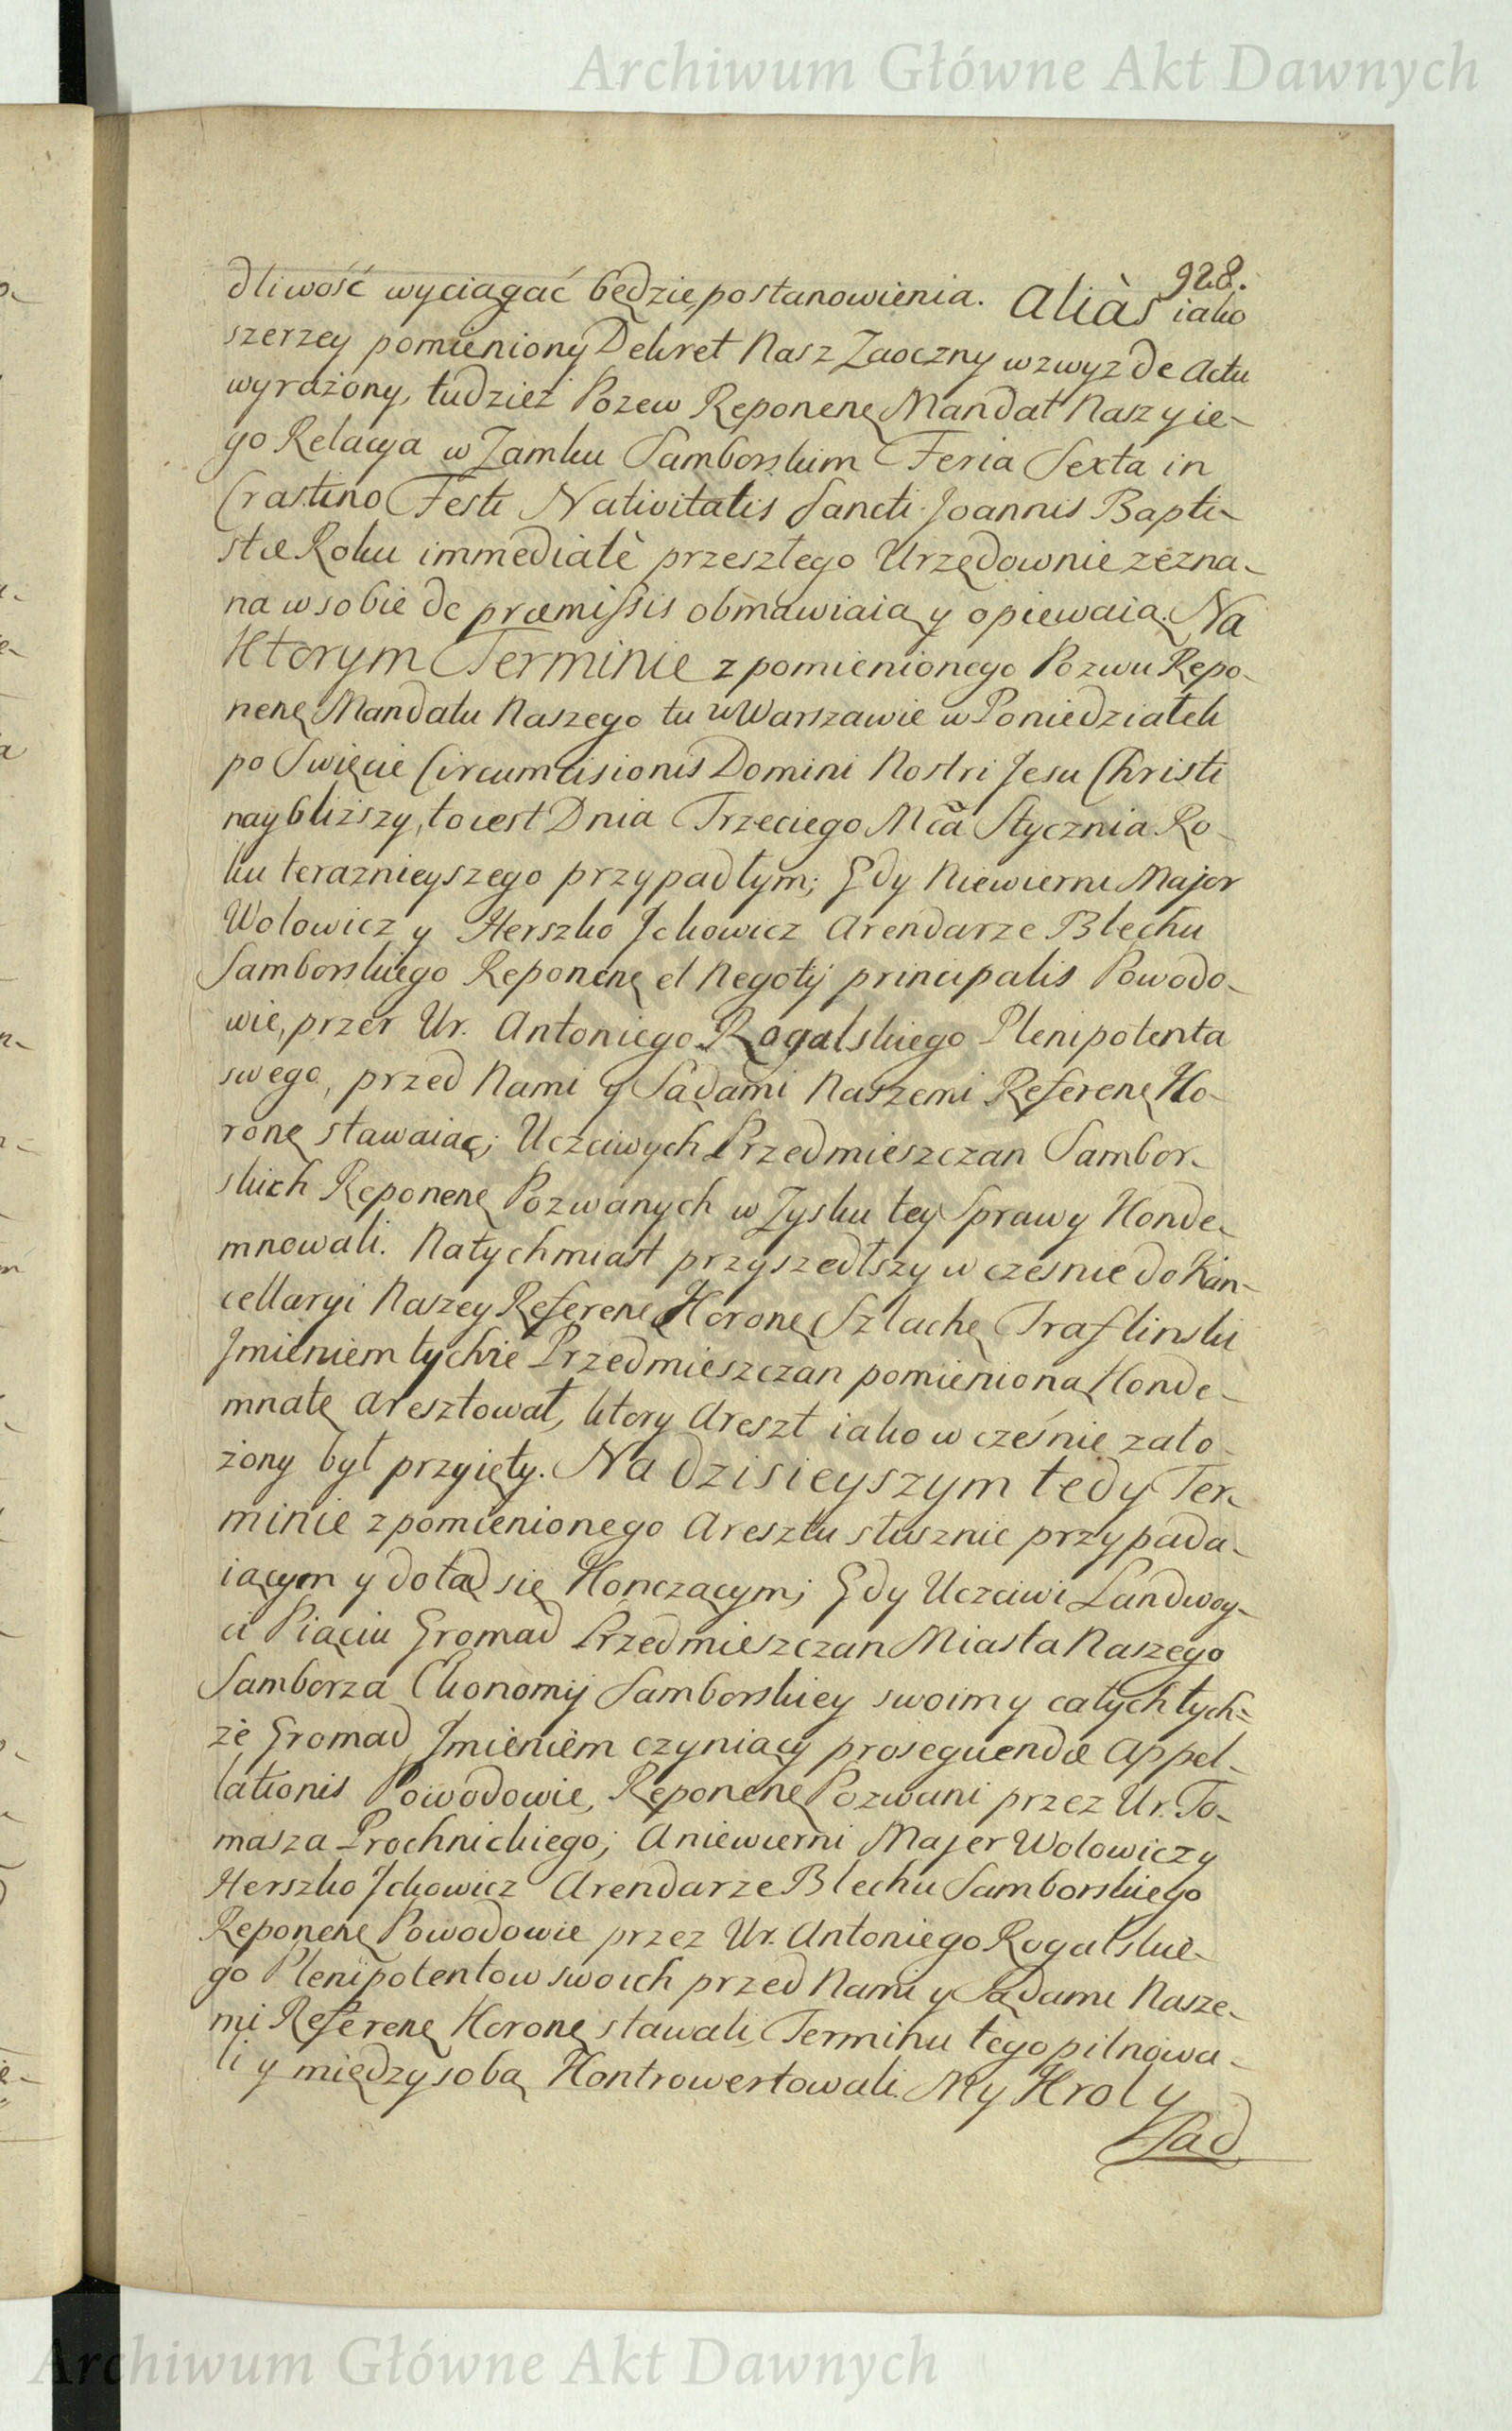 Archiwum Główne Akt Dawnych
928.
dliwość wyciągać będzie postanowienia. Aliàs iako
szerzey pomieniony Dekret Nasz Zaoczny wzwyż de Actu
wyrażony, tudzież Pozew Reponenę Mandat Nasz y ie-
go Relacya w Zamku Samborskim Feria Sexta in
Crastino Festi Nativitatis Sancti Joannis Bapti-
stæ Roku immediatè przeszłego Urzędownie zezna-
na w sobie de præmissis obmawiaią y opiewaią. Na
Ktorym Terminie z pomienionego Pozwu Repo-
nenę Mandatu Naszego tu w Warszawie w Poniedziałek
po Swięcie Circumcisionis Domini Nostri Jesu Christi
naybliższy, to iest Dnia Trzeciego Mca Stycznia Ro-
ku teraznieyszego przypadłym; Gdy Niewierni Major
Wolowicz y Herszko Jckowicz Arendarze Blechu
Samborskiego Reponenę et Negotij principalis Powodo-
wie, przez Ur. Antoniego Rogalskiego Plenipotenta
swego, przed Nami y Sądami Naszemi Referenę Ko-
ronę stawaiąc; Uczciwych Przedmieszczan Sambor-
skich Reponenę Pozwanych w Zysku tey Sprawy Konde-
mnowali. Natychmiast przyszedłszy w czesnie do Kan-
cellaryi Naszey Referenę Koronę Szlachę Traflinski
Jmieniem tychże Przedmieszczan pomienioną Konde-
mnatę Aresztował, ktory Areszt iako w cześnie zało-
żony był przyięty. Na dzisieyszym tedy Ter-
minie z pomienionego Aresztu słusznie przypada-
iącym y dotąd się Kończącym; Gdy Uczciwi Landwoy-
ci Piąciu Gromad Przedmieszczan Miasta Naszego
Samborza Ekonomij Samborskiey swoim y całych tych=
że Gromad Jmieniem czyniący prosequendæ Appel-
lationis Powodowie, Reponenę Pozwani przez Ur. To-
masza Prochnickiego; A niewierni Majer Wolowicz y
Herszko Jckowicz Arendarze Blechu Samborskiego
Reponenę Powodowie przez Ur. Antoniego Rogalskie-
go Plenipotentow swoich przed Nami y Sądami Nasze-
mi Referenę Koronę stawali, Terminu tego pilnowa-
li y między sobą Kontrowertowali. My Krol y
Sąd
Archiwum Główne Akt Dawnych